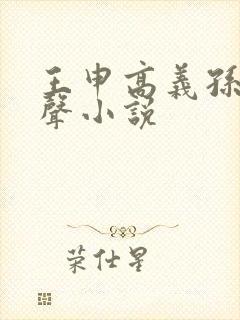 王申高義孫
聲小說
荣仕星